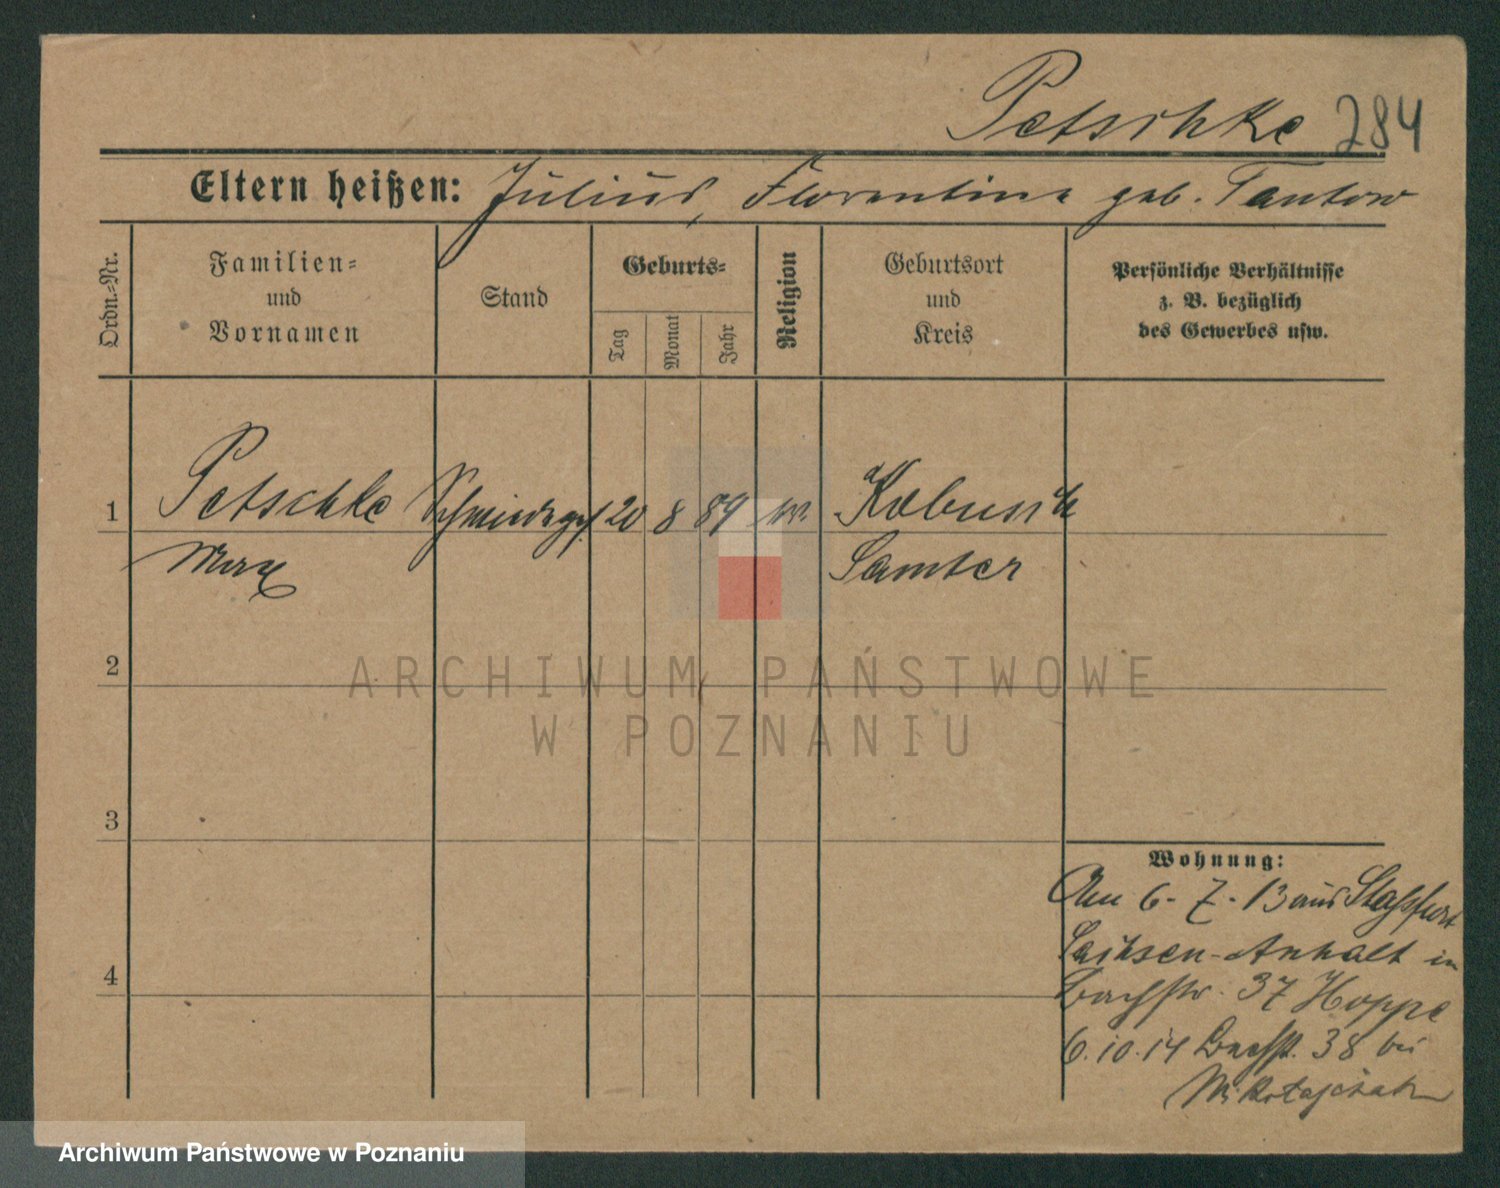 Petschke 284
Eltern heißen: Julius, Florentine geb. Tantow
Ordn.-Nr.
Familien-
und
Vornamen
Stand
Geburts-
Tag
Monat
Jahr
Religion
Geburtsort
und
Kreis
Persönliche Verhältnisse
z. B. bezüglich
des Gewerbes usw.
1 Petschke Schmiedeges. 20 8 89 Kobusch
Max Samter
2
3
4
Wohnung:
Am 6-7-13 aus Stassfurt
Sachsen-Anhalt in
Bachstr. 37 Hoppe
6.10.14 Bachst. 38 bei
Mikołajczak
ARCHIWUM PAŃSTWOWE
W POZNANIU
Archiwum Państwowe w Poznaniu